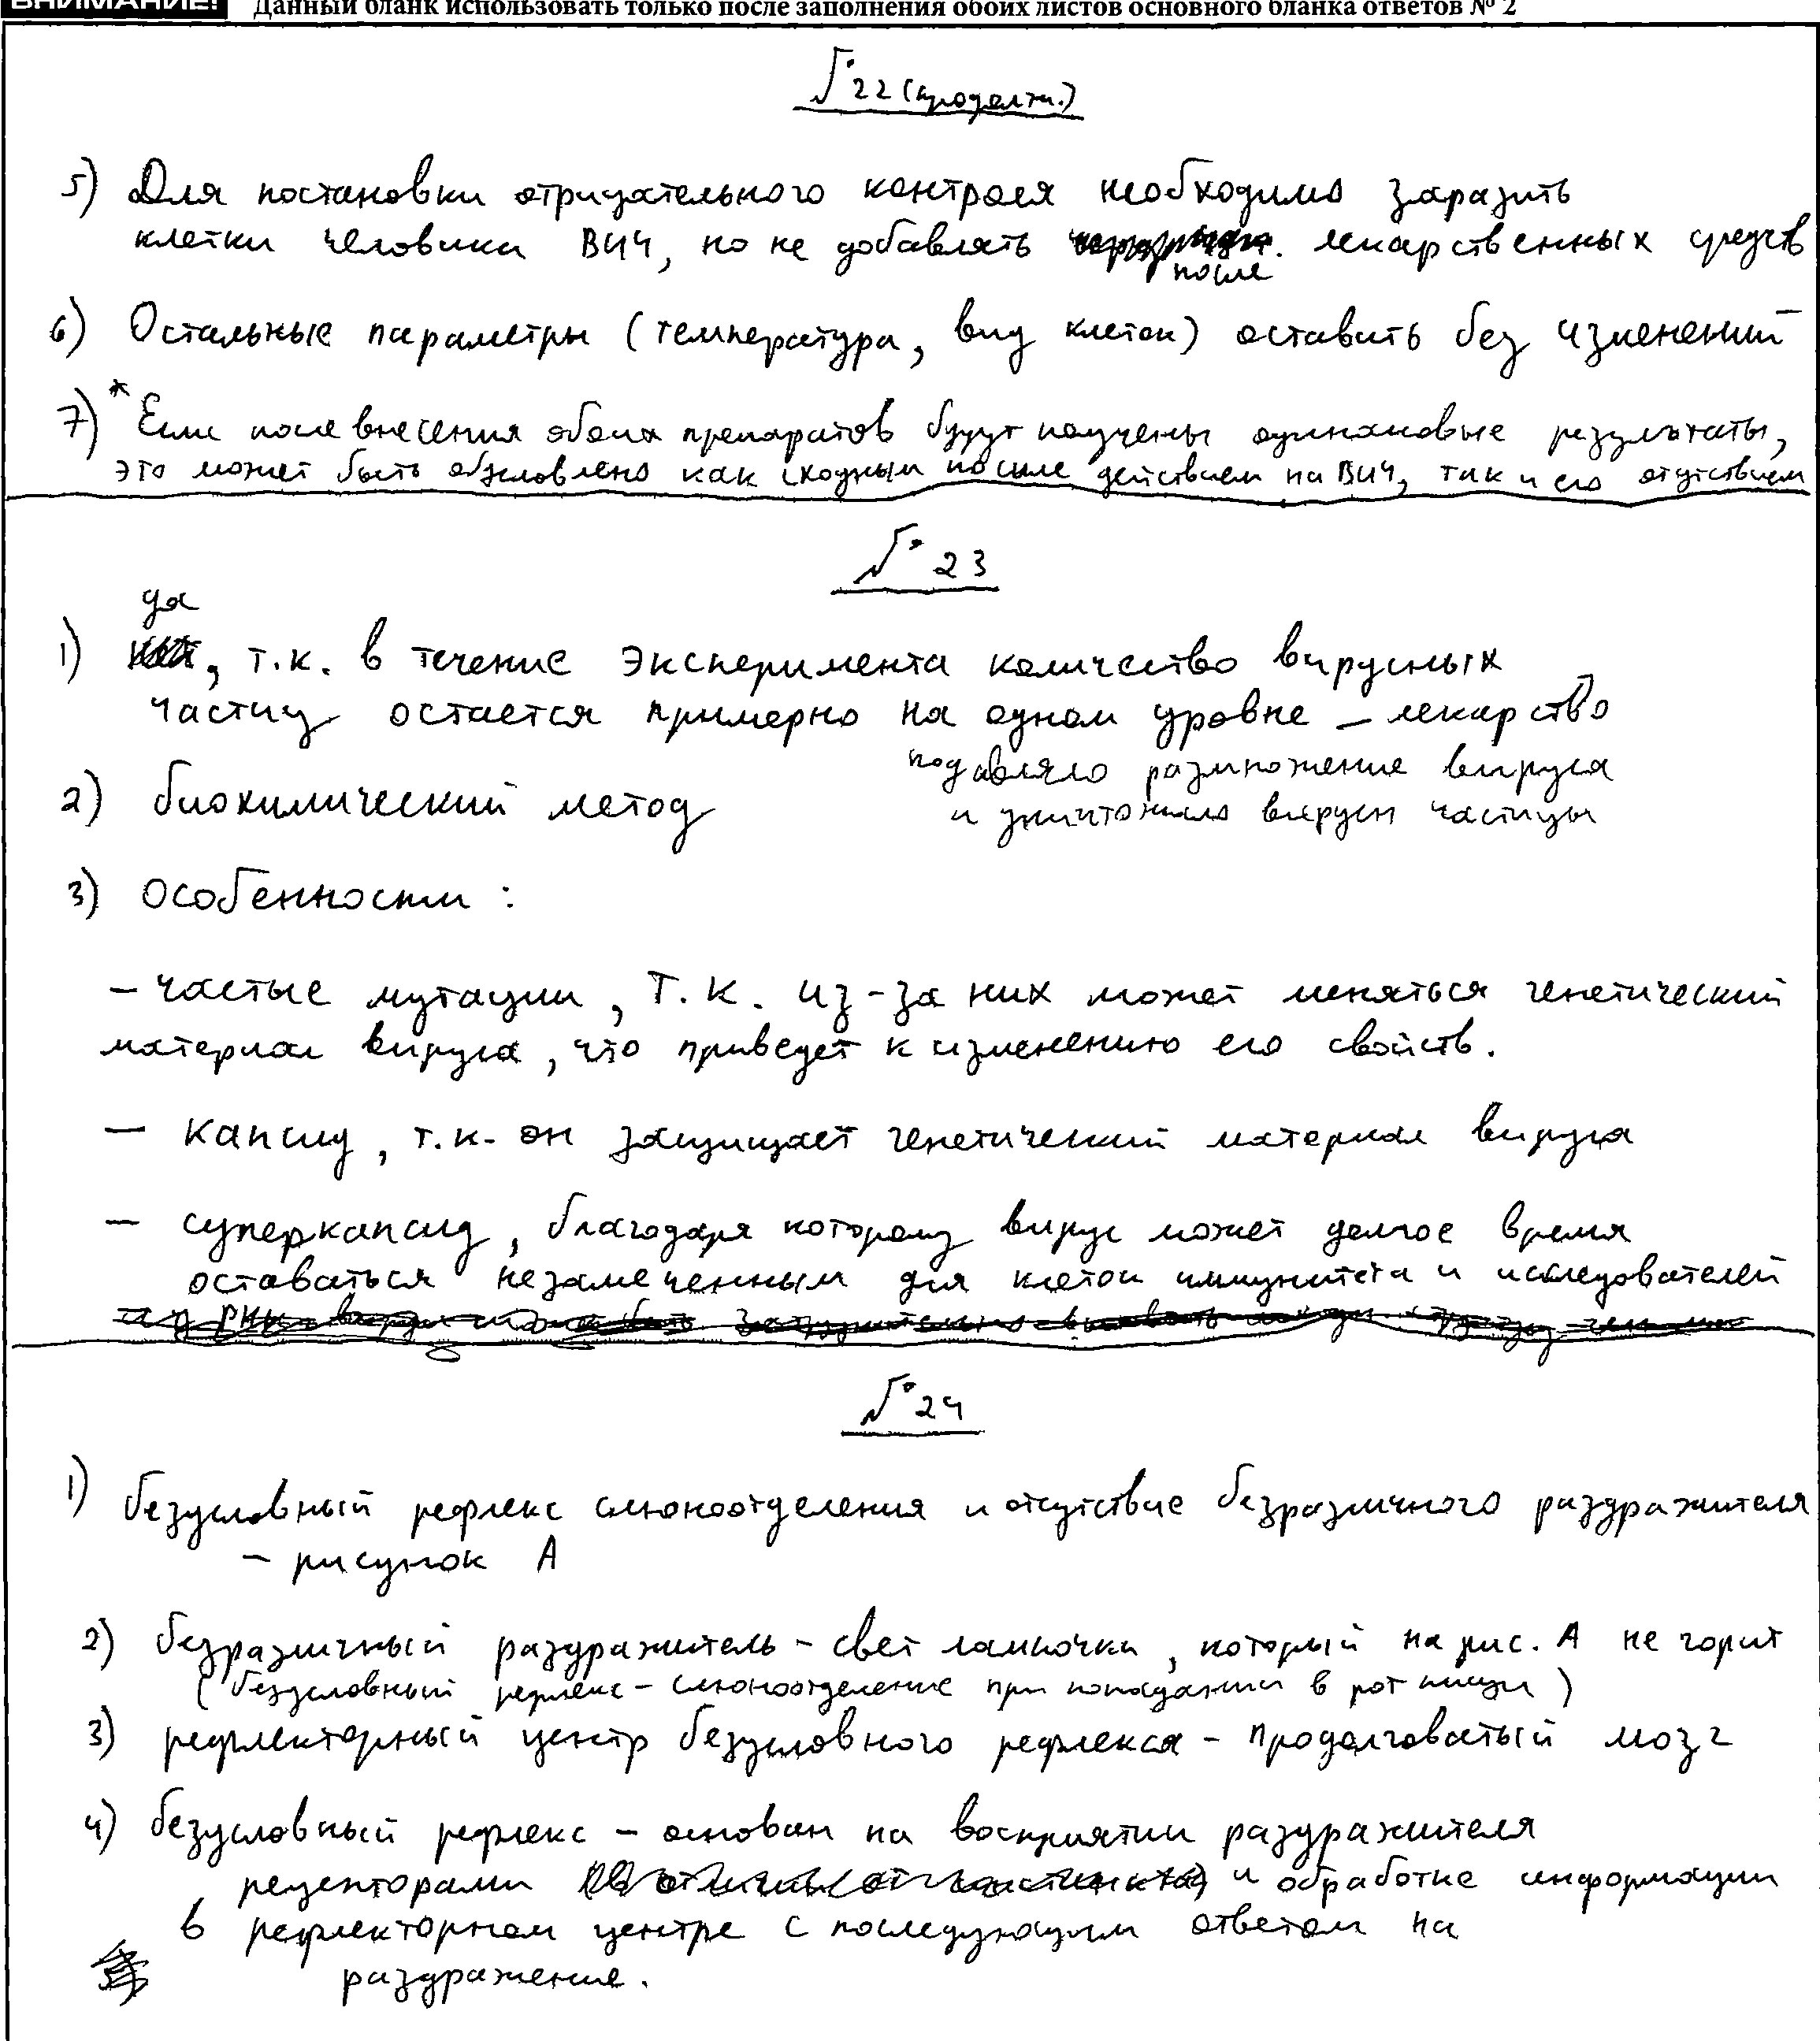 ВНИМАНИЕ! Данный бланк использовать только после заполнения обоих листов основного бланка ответов № 2
№ 22 (продолж.)
5) Для постановки отрицательного контроля необходимо заразить
клетки человека ВИЧ, но не добавлять после лекарственных средств
6) Остальные параметры (температура, вид клеток) оставить без изменений
7)* Если после внесения обоих препаратов будут получены одинаковые результаты,
это может быть обусловлено как сходным по силе действием на ВИЧ, так и его отсутствием
№ 23
1) да, т.к. в течение эксперимента количество вирусных
частиц остается примерно на одном уровне – лекарство
подавляло размножение вируса
и уничтожило вирусн частицы
2) биохимический метод
3) Особенности:
– частые мутации, т.к. из-за них может меняться генетический
материал вируса, что приведет к изменению его свойств.
– капсид, т.к. он защищает генетический материал вируса
– суперкапсид, благодаря которому вирус может долгое время
оставаться незамеченным для клеток иммунитета и исследователей
№ 24
1) безусловный рефлекс слюноотделения и отсутствие безразличного раздражителя
– рисунок А
2) безразличный раздражитель – свет лампочки, который на рис. А не горит
(безусловный рефлекс – слюноотделение при попадании в рот пищи)
3) рефлекторный центр безусловного рефлекса – продолговатый мозг
4) безусловный рефлекс – основан на восприятии раздражителя
рецепторами и обработке информации
в рефлекторном центре с последующим ответом на
раздражение.